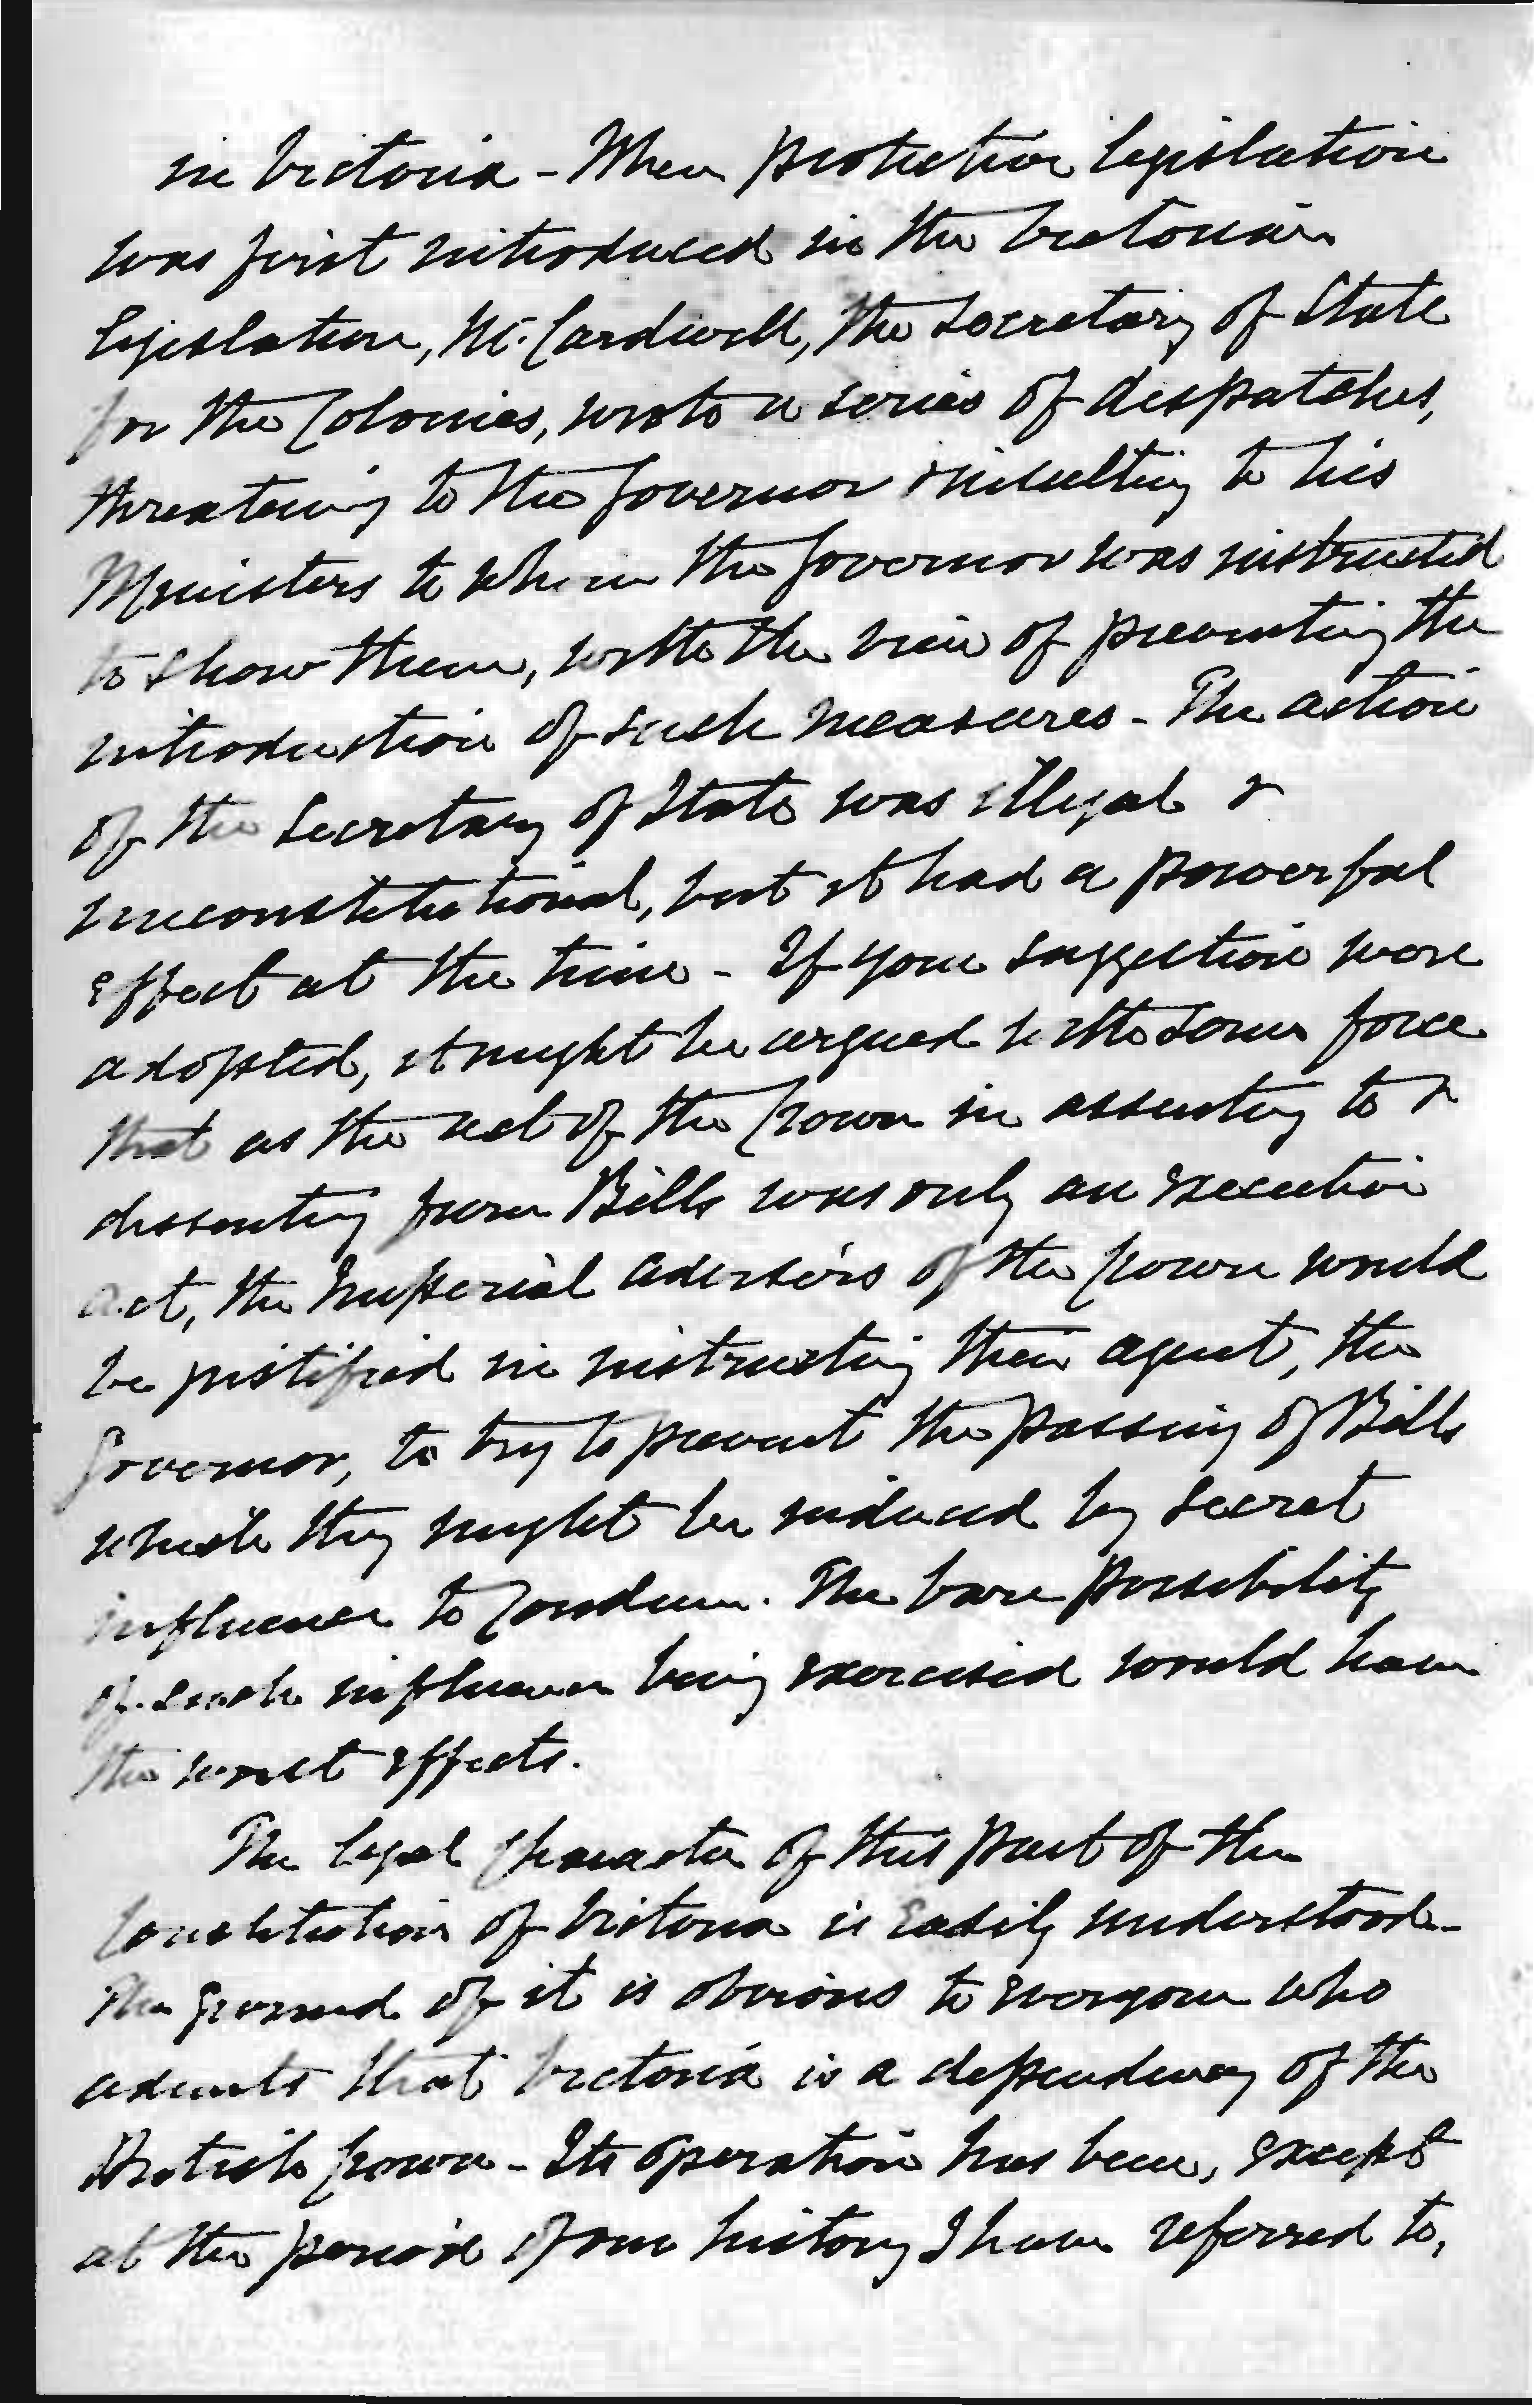 in Victoria - When protective legislation
was first introduced in the Victorian
Legislature, Mr. Cardwell, the Secretary of State
for the Colonies, wrote a series of despatches,
threatening to the Governor & insulting to his
Ministers to whom the Governor was instructed
to show them, with the view of preventing the
introduction of such measures - The action
of the Secretary of State was illegal &
unconstitutional, but it had a powerful
effect at the time - If your suggestion were
adopted, it might be argued with some force
that as the act of the Crown in assenting to &
dissenting from Bills was only an executive
act, the Imperial advisers of the Crown would
be justified in instructing their agent, the
Governor, to try to prevent the passing of Bills
which they might be induced by secret
influence to condemn. The bare possibility
of such influence being exercised would have
the worst effects.
The legal character of this part of the
Constitution of Victoria is easily understood -
The ground of it is obvious to everyone who
admits that Victoria is a dependency of the
British Crown - Its operation has been, except
at the period of our history I have referred to,